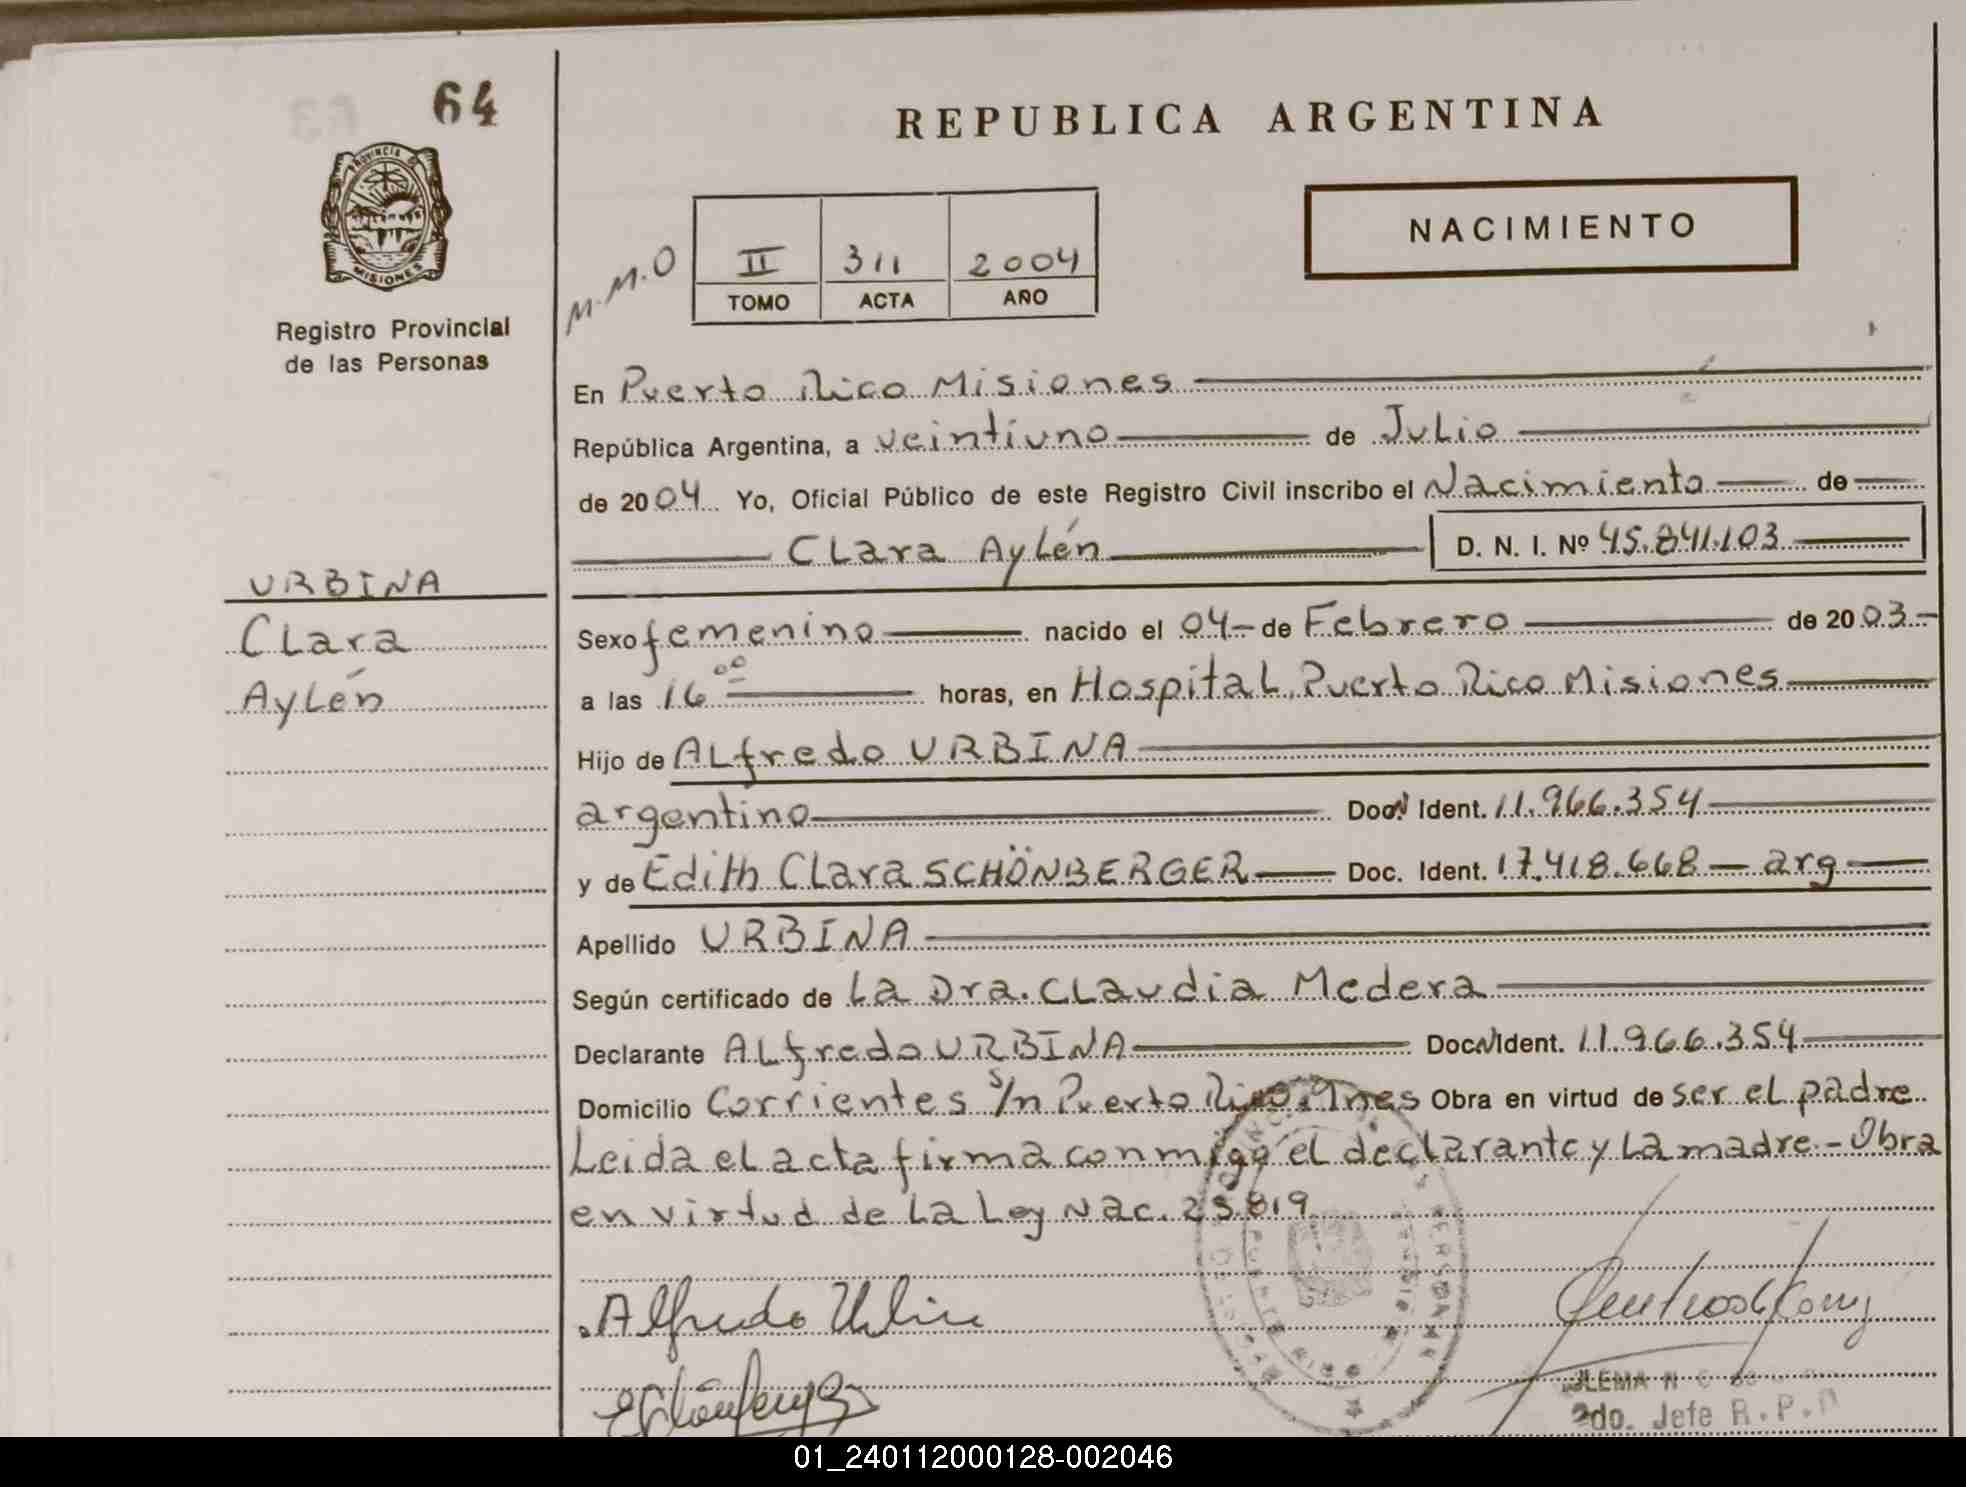 64
REPUBLICA ARGENTINA
PROVINCIA DE
MISIONES
Registro Provincial
de las Personas
M.M.O
II 311 2004
TOMO ACTA AÑO
NACIMIENTO
En Puerto Rico Misiones
República Argentina, a veintiuno de Julio
de 2004 Yo, Oficial Público de este Registro Civil inscribo el Nacimiento de
Clara Aylén D. N. I. Nº 45.841.103
URBINA
Clara
Aylén
Sexo femenino nacido el 04 de Febrero de 2003
a las 16 00 horas, en Hospital Puerto Rico Misiones
Hijo de Alfredo URBINA
argentino Doc. Ident. 11.966.354
y de Edith Clara SCHÖNBERGER Doc. Ident. 17.418.668 - arg
Apellido URBINA
Según certificado de La Dra. Claudia Medera
Declarante Alfredo URBINA Doc. Ident. 11.966.354
Domicilio Corrientes s/n Puerto Rico Mnes Obra en virtud de ser el padre
Leida el acta firma conmigo el declarante y la madre - Obra
en virtud de la Ley Nac. 25.819
Alfredo Urbina
2do. Jefe R.P.P
01_240112000128-002046